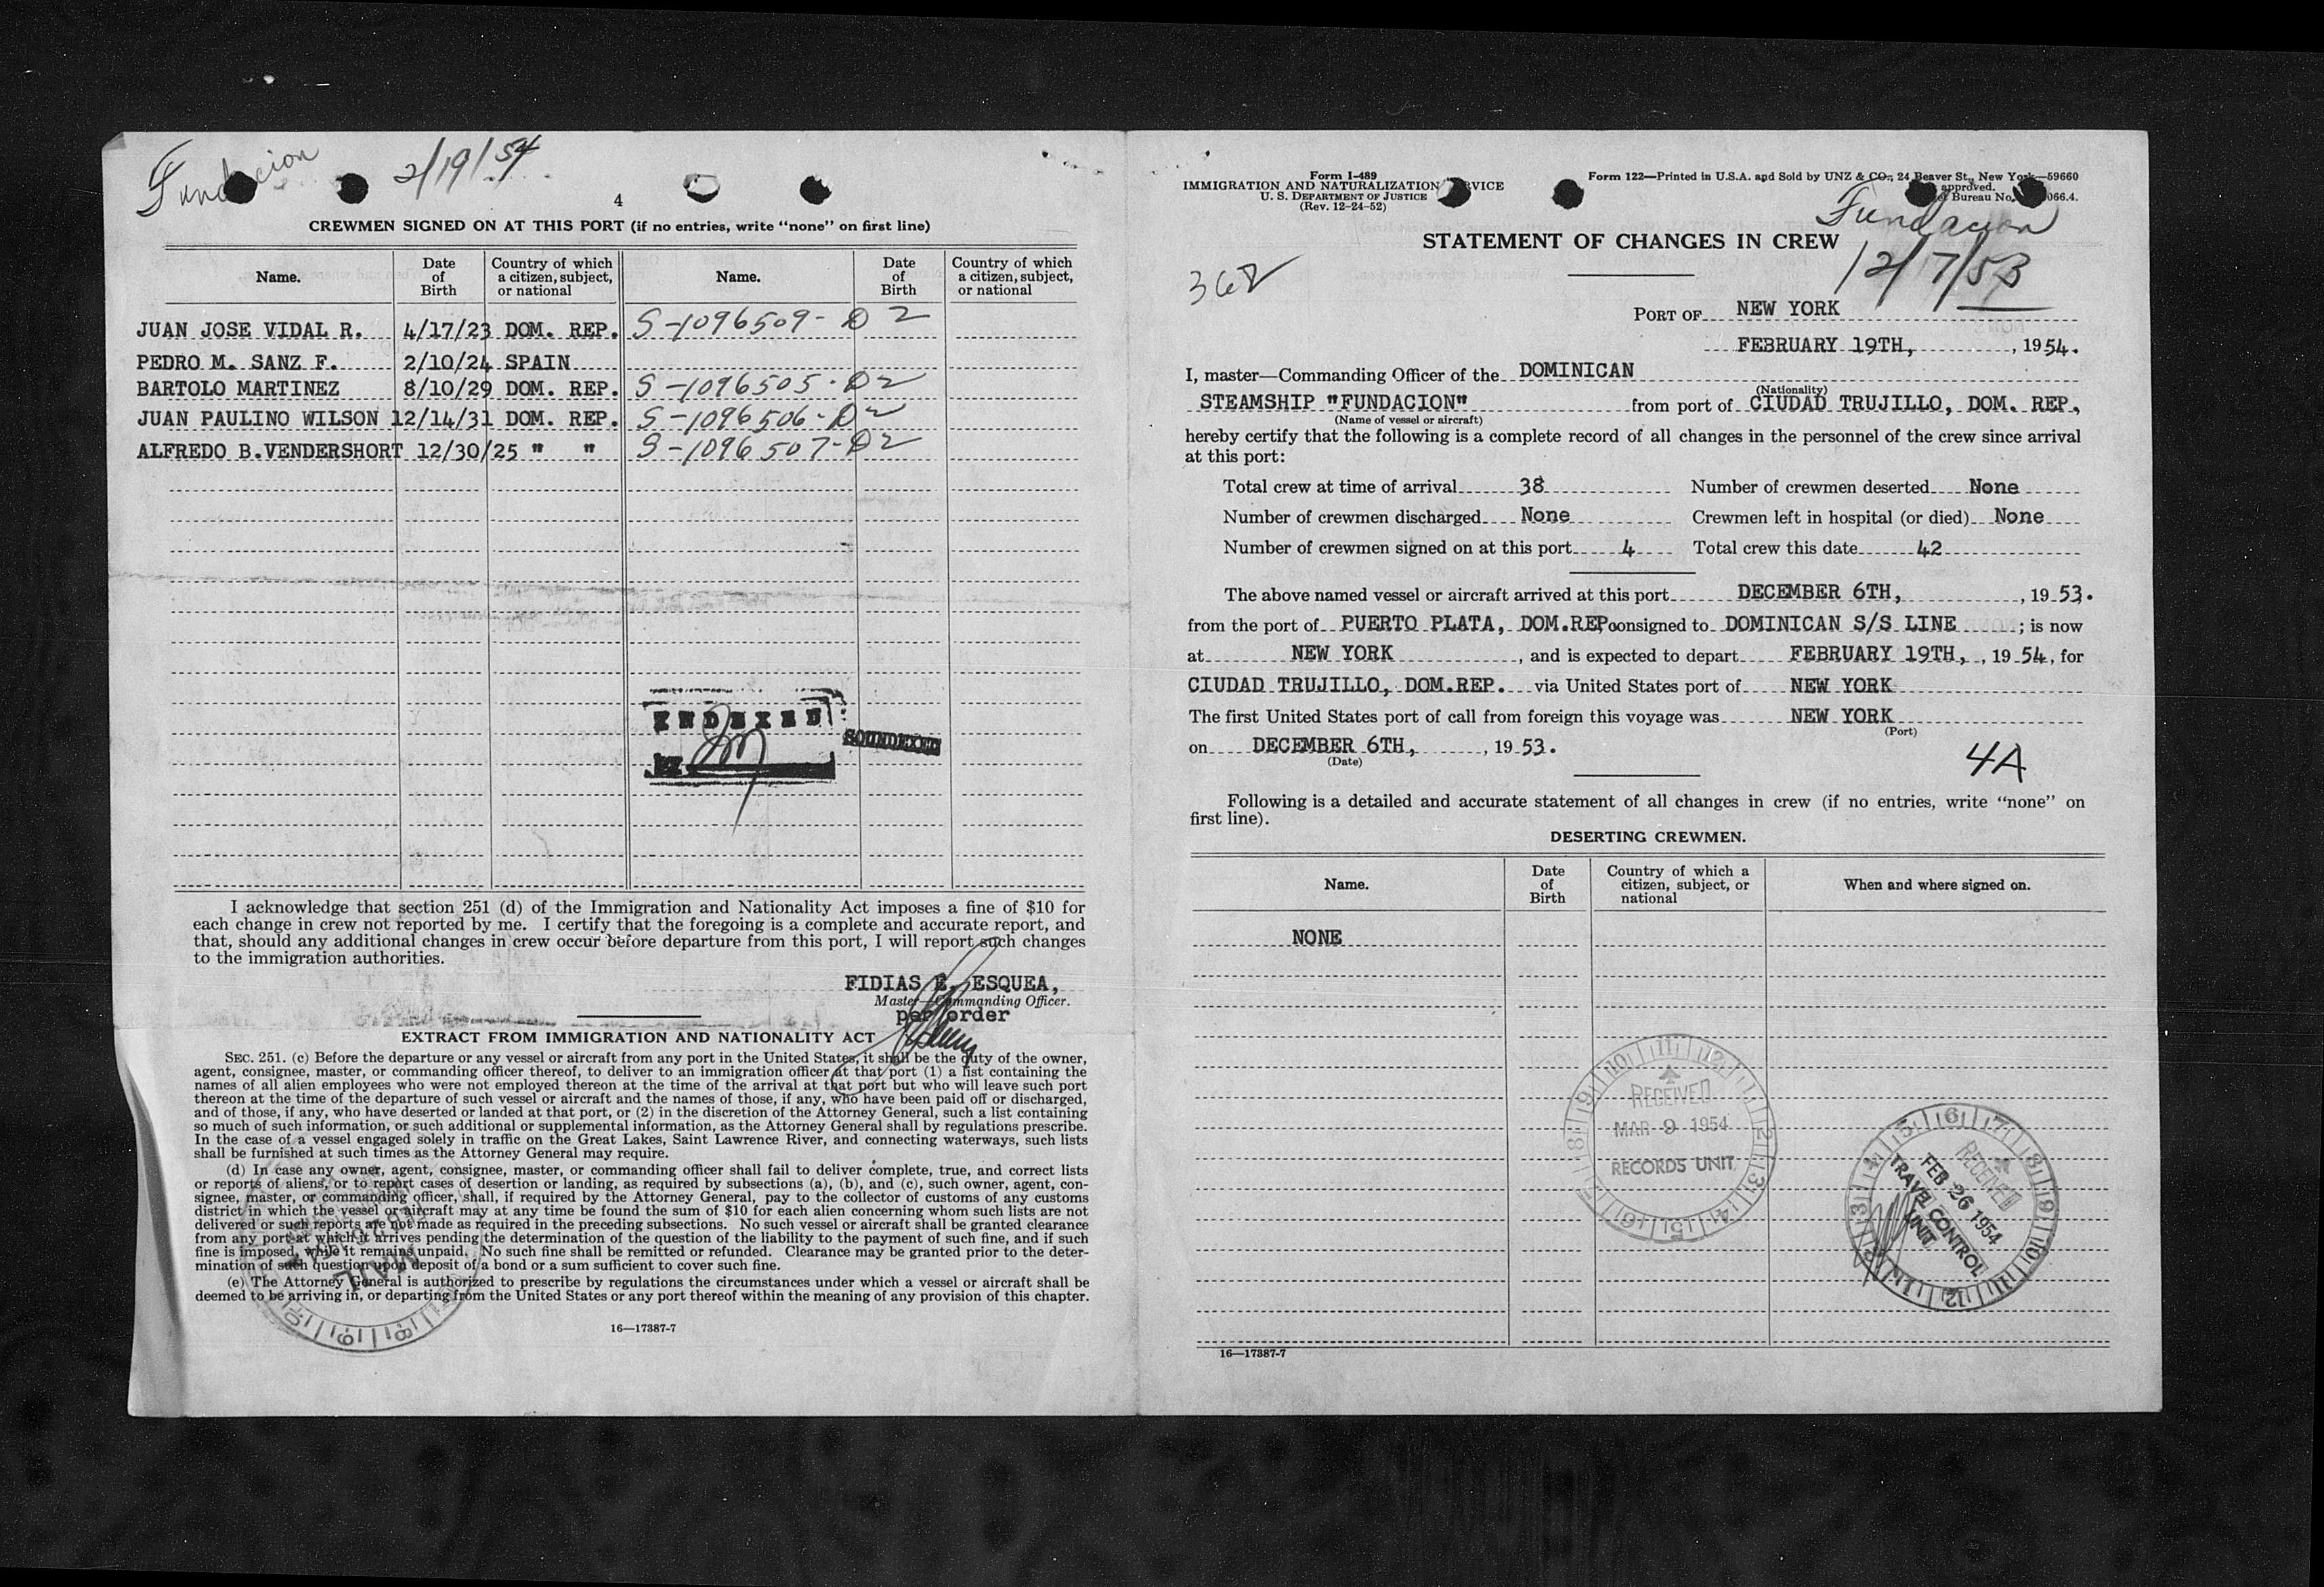 Fundacion 2/19/54
4
CREWMEN SIGNED ON AT THIS PORT (if no entries, write "none" on first line)
Name. Date of Birth Country of which a citizen, subject, or national Name. Date of Birth Country of which a citizen, subject, or national
JUAN JOSE VIDAL R. 4/17/23 DOM. REP. S-1096509-D2
PEDRO M. SANZ F. 2/10/24 SPAIN
BARTOLO MARTINEZ 8/10/29 DOM. REP. S-1096505-D2
JUAN PAULINO WILSON 12/14/31 DOM. REP. S-1096506-D2
ALFREDO B.VENDERSHORT 12/30/25 " " S-1096507-D2
INDEXED
BY
SOUNDEXED
I acknowledge that section 251 (d) of the Immigration and Nationality Act imposes a fine of $10 for
each change in crew not reported by me. I certify that the foregoing is a complete and accurate report, and
that, should any additional changes in crew occur before departure from this port, I will report such changes
to the immigration authorities.
FIDIAS E. ESQUEA,
Master—Commanding Officer.
per order
EXTRACT FROM IMMIGRATION AND NATIONALITY ACT
SEC. 251. (c) Before the departure or any vessel or aircraft from any port in the United States, it shall be the duty of the owner,
agent, consignee, master, or commanding officer thereof, to deliver to an immigration officer at that port (1) a list containing the
names of all alien employees who were not employed thereon at the time of the arrival at that port but who will leave such port
thereon at the time of the departure of such vessel or aircraft and the names of those, if any, who have been paid off or discharged,
and of those, if any, who have deserted or landed at that port, or (2) in the discretion of the Attorney General, such a list containing
so much of such information, or such additional or supplemental information, as the Attorney General shall by regulations prescribe.
In the case of a vessel engaged solely in traffic on the Great Lakes, Saint Lawrence River, and connecting waterways, such lists
shall be furnished at such times as the Attorney General may require.
(d) In case any owner, agent, consignee, master, or commanding officer shall fail to deliver complete, true, and correct lists
or reports of aliens, or to report cases of desertion or landing, as required by subsections (a), (b), and (c), such owner, agent, con-
signee, master, or commanding officer, shall, if required by the Attorney General, pay to the collector of customs of any customs
district in which the vessel or aircraft may at any time be found the sum of $10 for each alien concerning whom such lists are not
delivered or such reports are not made as required in the preceding subsections. No such vessel or aircraft shall be granted clearance
from any port at which it arrives pending the determination of the question of the liability to the payment of such fine, and if such
fine is imposed, while it remains unpaid. No such fine shall be remitted or refunded. Clearance may be granted prior to the deter-
mination of such question upon deposit of a bond or a sum sufficient to cover such fine.
(e) The Attorney General is authorized to prescribe by regulations the circumstances under which a vessel or aircraft shall be
deemed to be arriving in, or departing from the United States or any port thereof within the meaning of any provision of this chapter.
MAIL
16—17387-7
Form I-489
IMMIGRATION AND NATURALIZATION RVICE
U. S. DEPARTMENT OF JUSTICE
(Rev. 12-24-52)
Form 122—Printed in U.S.A. and Sold by UNZ & CO., 24 Beaver St., New York—59660
approved.
Bureau No. 066.4.
Fundacion
STATEMENT OF CHANGES IN CREW
12/7/53
368
PORT OF NEW YORK
FEBRUARY 19TH, , 1954.
I, master—Commanding Officer of the DOMINICAN
(Nationality)
STEAMSHIP "FUNDACION" from port of CIUDAD TRUJILLO, DOM. REP.,
(Name of vessel or aircraft)
hereby certify that the following is a complete record of all changes in the personnel of the crew since arrival
at this port:
Total crew at time of arrival 38 Number of crewmen deserted None
Number of crewmen discharged None Crewmen left in hospital (or died) None
Number of crewmen signed on at this port 4 Total crew this date 42
The above named vessel or aircraft arrived at this port DECEMBER 6TH, , 19 53.
from the port of PUERTO PLATA, DOM.REP. consigned to DOMINICAN S/S LINE ; is now
at NEW YORK , and is expected to depart FEBRUARY 19TH, , 19 54, for
CIUDAD TRUJILLO, DOM.REP. via United States port of NEW YORK
The first United States port of call from foreign this voyage was NEW YORK
(Port)
on DECEMBER 6TH, , 19 53.
(Date)
4A
Following is a detailed and accurate statement of all changes in crew (if no entries, write "none" on
first line).
DESERTING CREWMEN.
Name. Date of Birth Country of which a citizen, subject, or national When and where signed on.
NONE
RECEIVED
MAR 9 1954
RECORDS UNIT
RECEIVED
FEB 26 1954
TRAVEL CONTROL
UNIT
16—17387-7